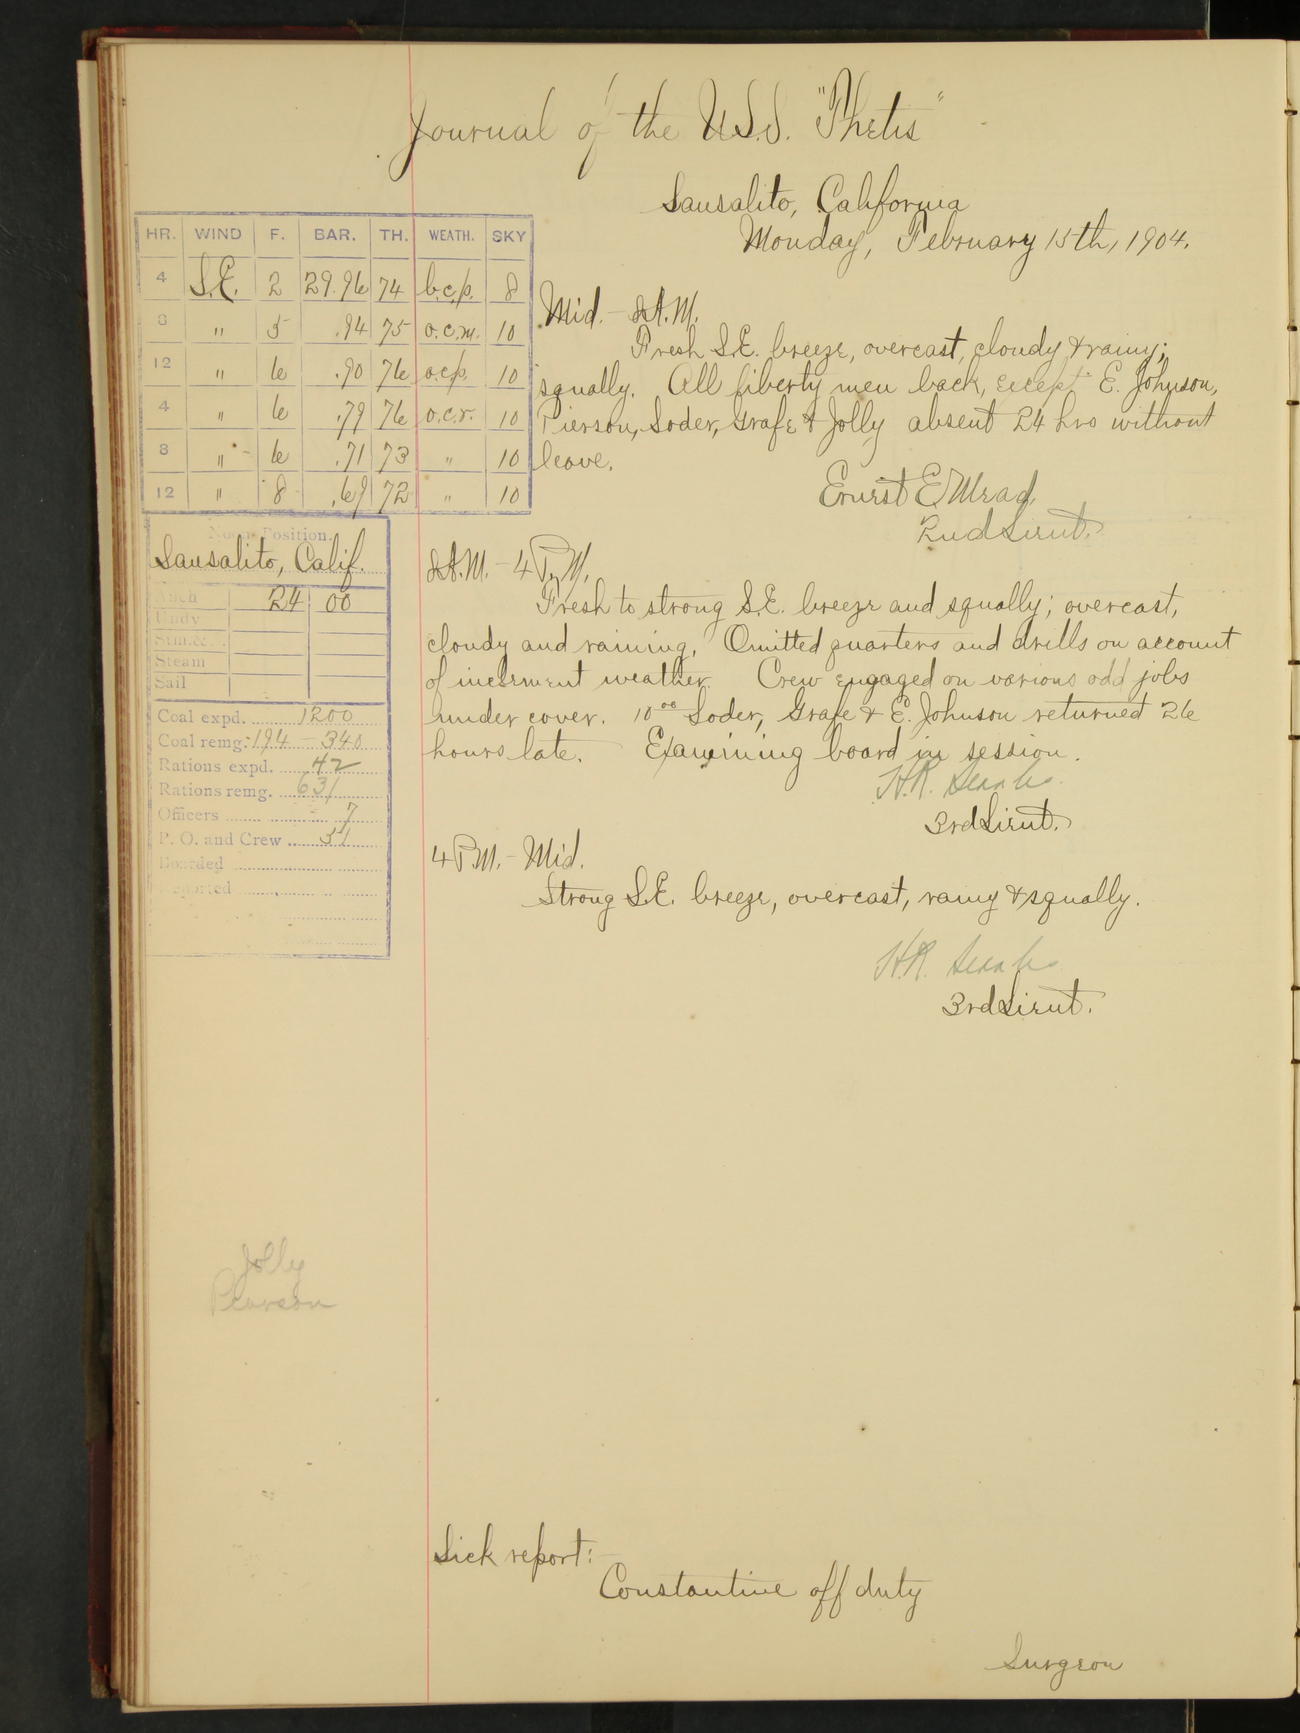 Journal of the U.S.S. "Thetis"
Sausalito, California
Monday, February 15th, 1904.
HR. WIND F. BAR. TH. WEATH. SKY
4 S.E. 2 29.96 74 b.c.p. 8
8 " 5 .94 75 o.c.m. 10
12 " 6 .90 76 o.c.p. 10
4 " 6 .79 76 o.c.r. 10
8 " 6 .71 73 " 10
12 " 8 .69 72 " 10
Noon Position.
Sausalito, Calif.
Anch 24 00
Undy
Stm.&
Steam
Sail
Coal expd. 1200
Coal remg. 194 - 340
Rations expd. 42
Rations remg. 631
Officers 7
P. O. and Crew 51
Boarded
Reported
Mid. - 8A.M.
Fresh S.E. breeze, overcast, cloudy & rainy;
squally. All liberty men back, except E. Johnson,
Pierson, Soder, Grafe & Jolly absent 24 hrs without
leave.
Ernest E. Mead,
2nd Lieut.
8A.M. - 4 P.M.
Fresh to strong S.E. breeze and squally; overcast,
cloudy and raining. Omitted quarters and drills on account
of inclement weather. Crew engaged on various odd jobs
under cover. 10 00 Soder, Grafe & E. Johnson returned 26
hours late. Examining board in session.
H.R. Searles
3rd Lieut.
4 P.M. - Mid.
Strong S.E. breeze, overcast, rainy & squally.
H.R. Searles
3rd Lieut.
Jolly
Pearson
Sick report:
Constantine off duty
Surgeon